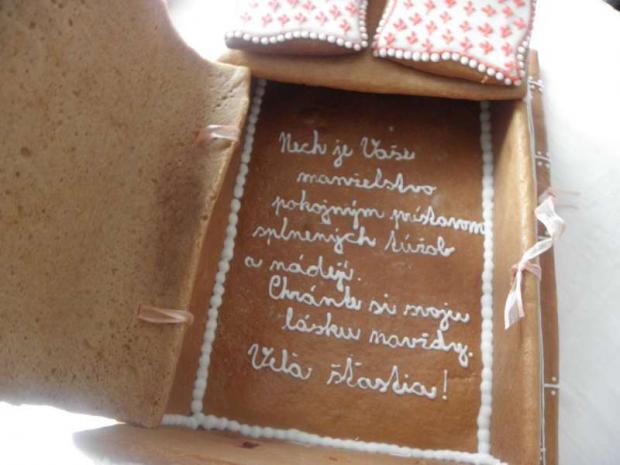 Nech je Vaše
manželstvo
pokojným prístavom
splnených túžob
a nádejí.
Chráňte si svoju
lásku navždy.
Veľa šťastia!